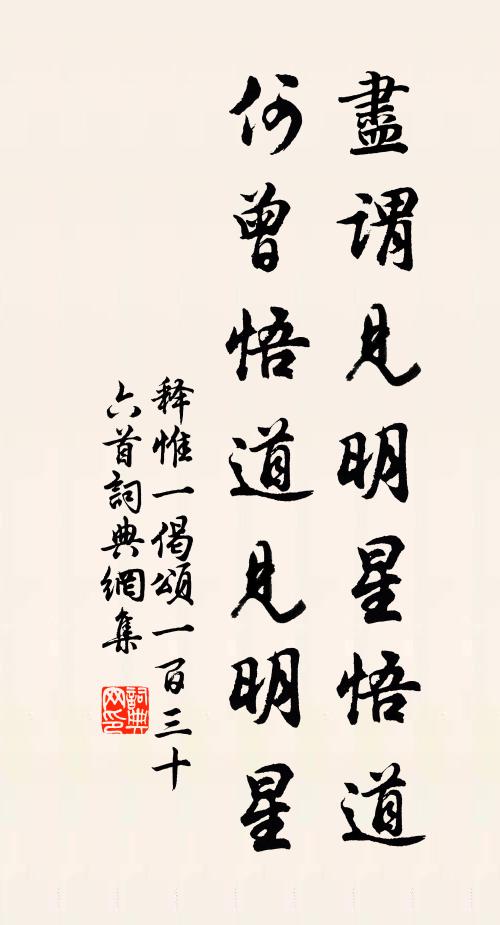 盡謂見明星悟道
何曾悟道見明星
释惟一偈頌一百三十
六首詞典網集
詞典网印